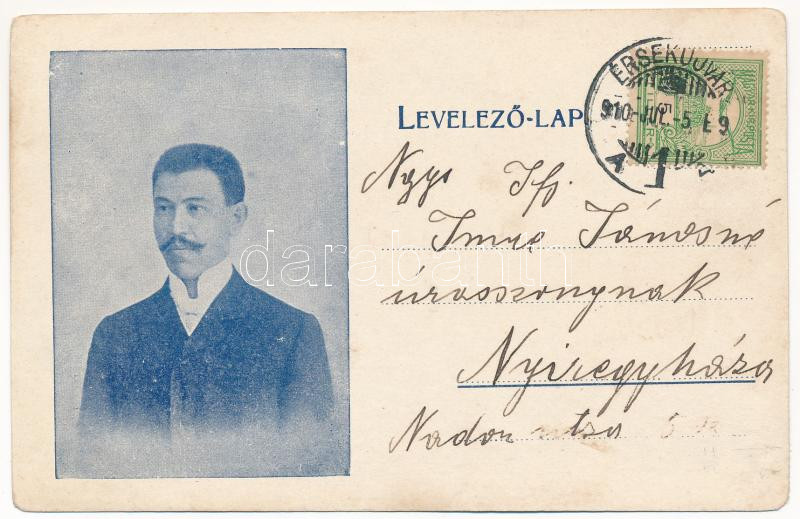 LEVELEZŐ-LAP
ÉRSEKUJVÁR
910 JUL. -5 É 9
A 1
Ngys Ifj.
Imre Jánosné
úrasszonynak
Nyiregyháza
Nador utsa 5
darabanth